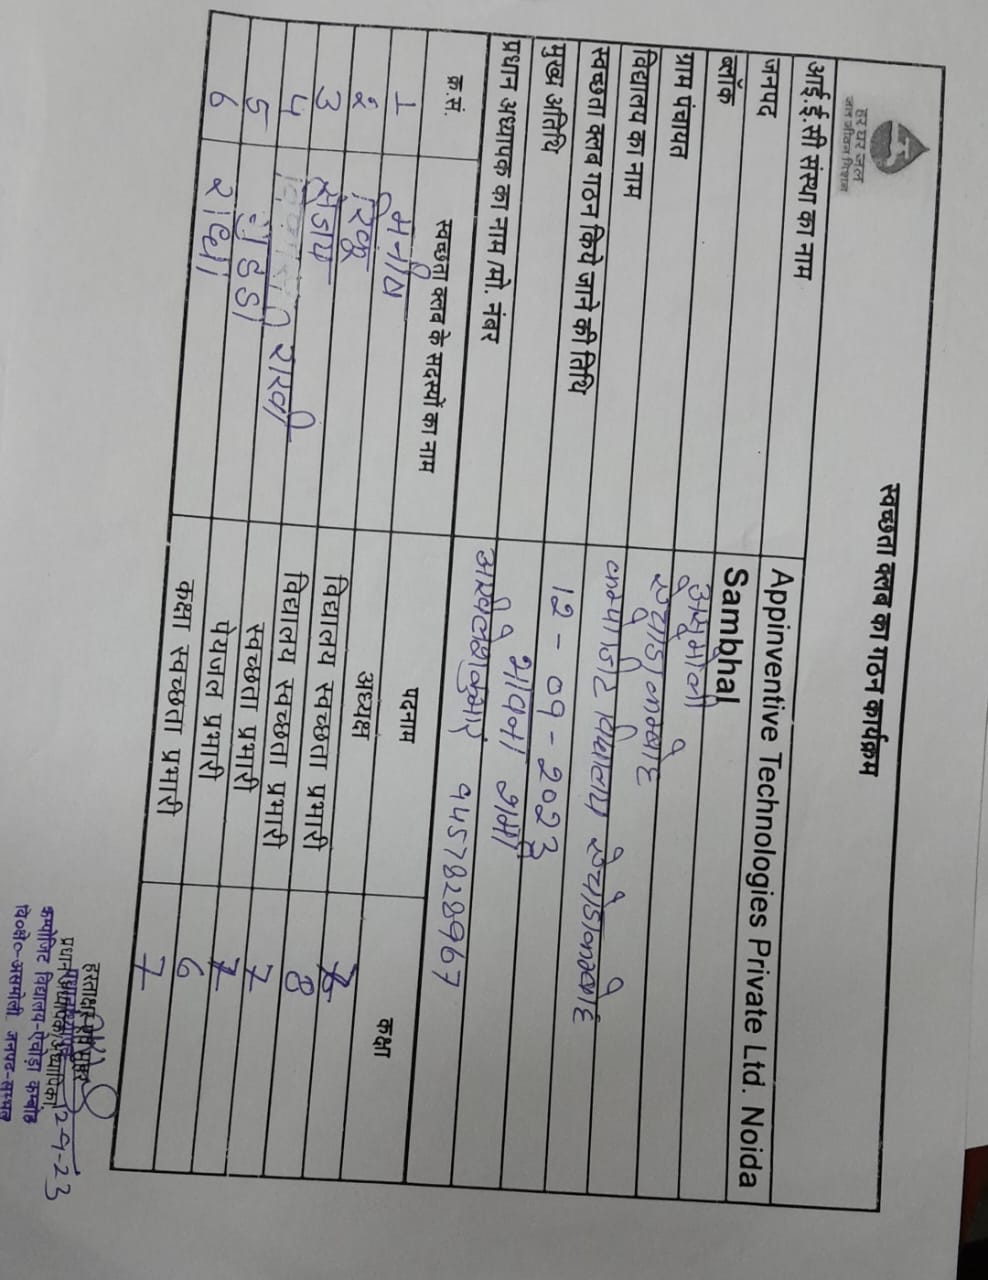 हर घर जल
जल जीवन मिशन
स्वच्छता क्लब का गठन कार्यक्रम
आई.ई.सी संस्था का नाम Appinventive Technologies Private Ltd. Noida
जनपद Sambhal
ब्लॉक असमोली
ग्राम पंचायत ऐचोड़ा कम्बोह
विद्यालय का नाम कम्पोजिट विद्यालय ऐचोड़ा कम्बोह
स्वच्छता क्लब गठन किये जाने की तिथि 12-09-2023
मुख्य अतिथि भावना शर्मा
प्रधान अध्यापक का नाम /मो. नंबर अखिलेश कुमार 9457828967
क्र.सं. स्वच्छता क्लब के सदस्यों का नाम पदनाम कक्षा
1 अध्यक्ष 8
2 रिंकू विद्यालय स्वच्छता प्रभारी 8
3 संजय विद्यालय स्वच्छता प्रभारी 7
4 राखी स्वच्छता प्रभारी 7
5 गुड्डी पेयजल प्रभारी 6
6 राधा कक्षा स्वच्छता प्रभारी 7
हस्ताक्षर एवं मुहर
प्रधान अध्यापक/अध्यापिका
12-9-23
कम्पोजिट विद्यालय-ऐचोड़ा कम्बोह
वि०क्षे०-असमोली, जनपद-सम्भल